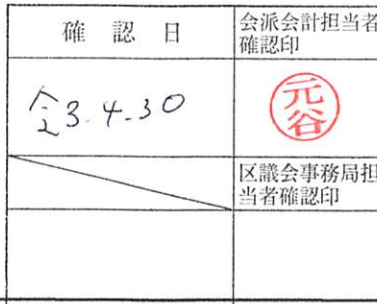 確認日
会派会計担当者
確認印
令3.4.30
元谷
区議会事務局担
当者確認印